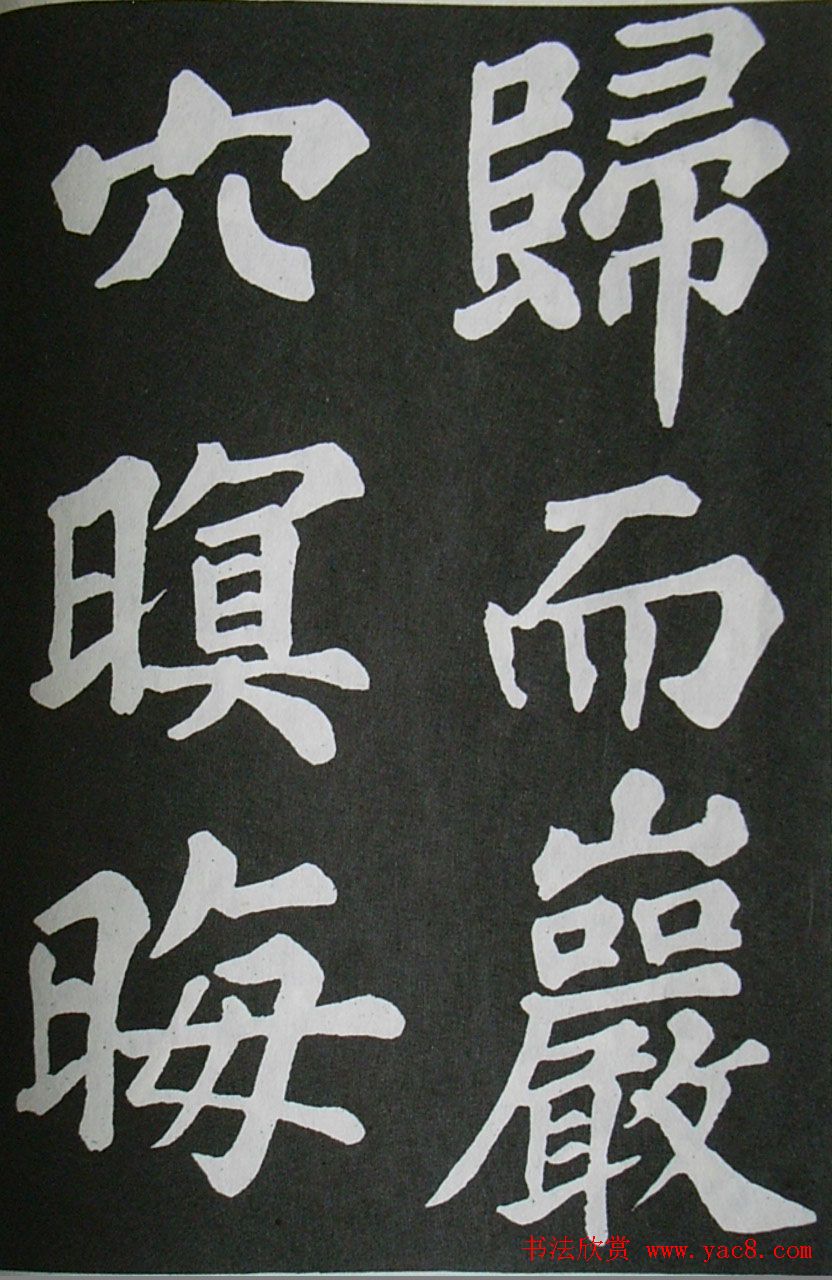 歸而巖
穴暝晦
书法欣赏 www.yac8.com